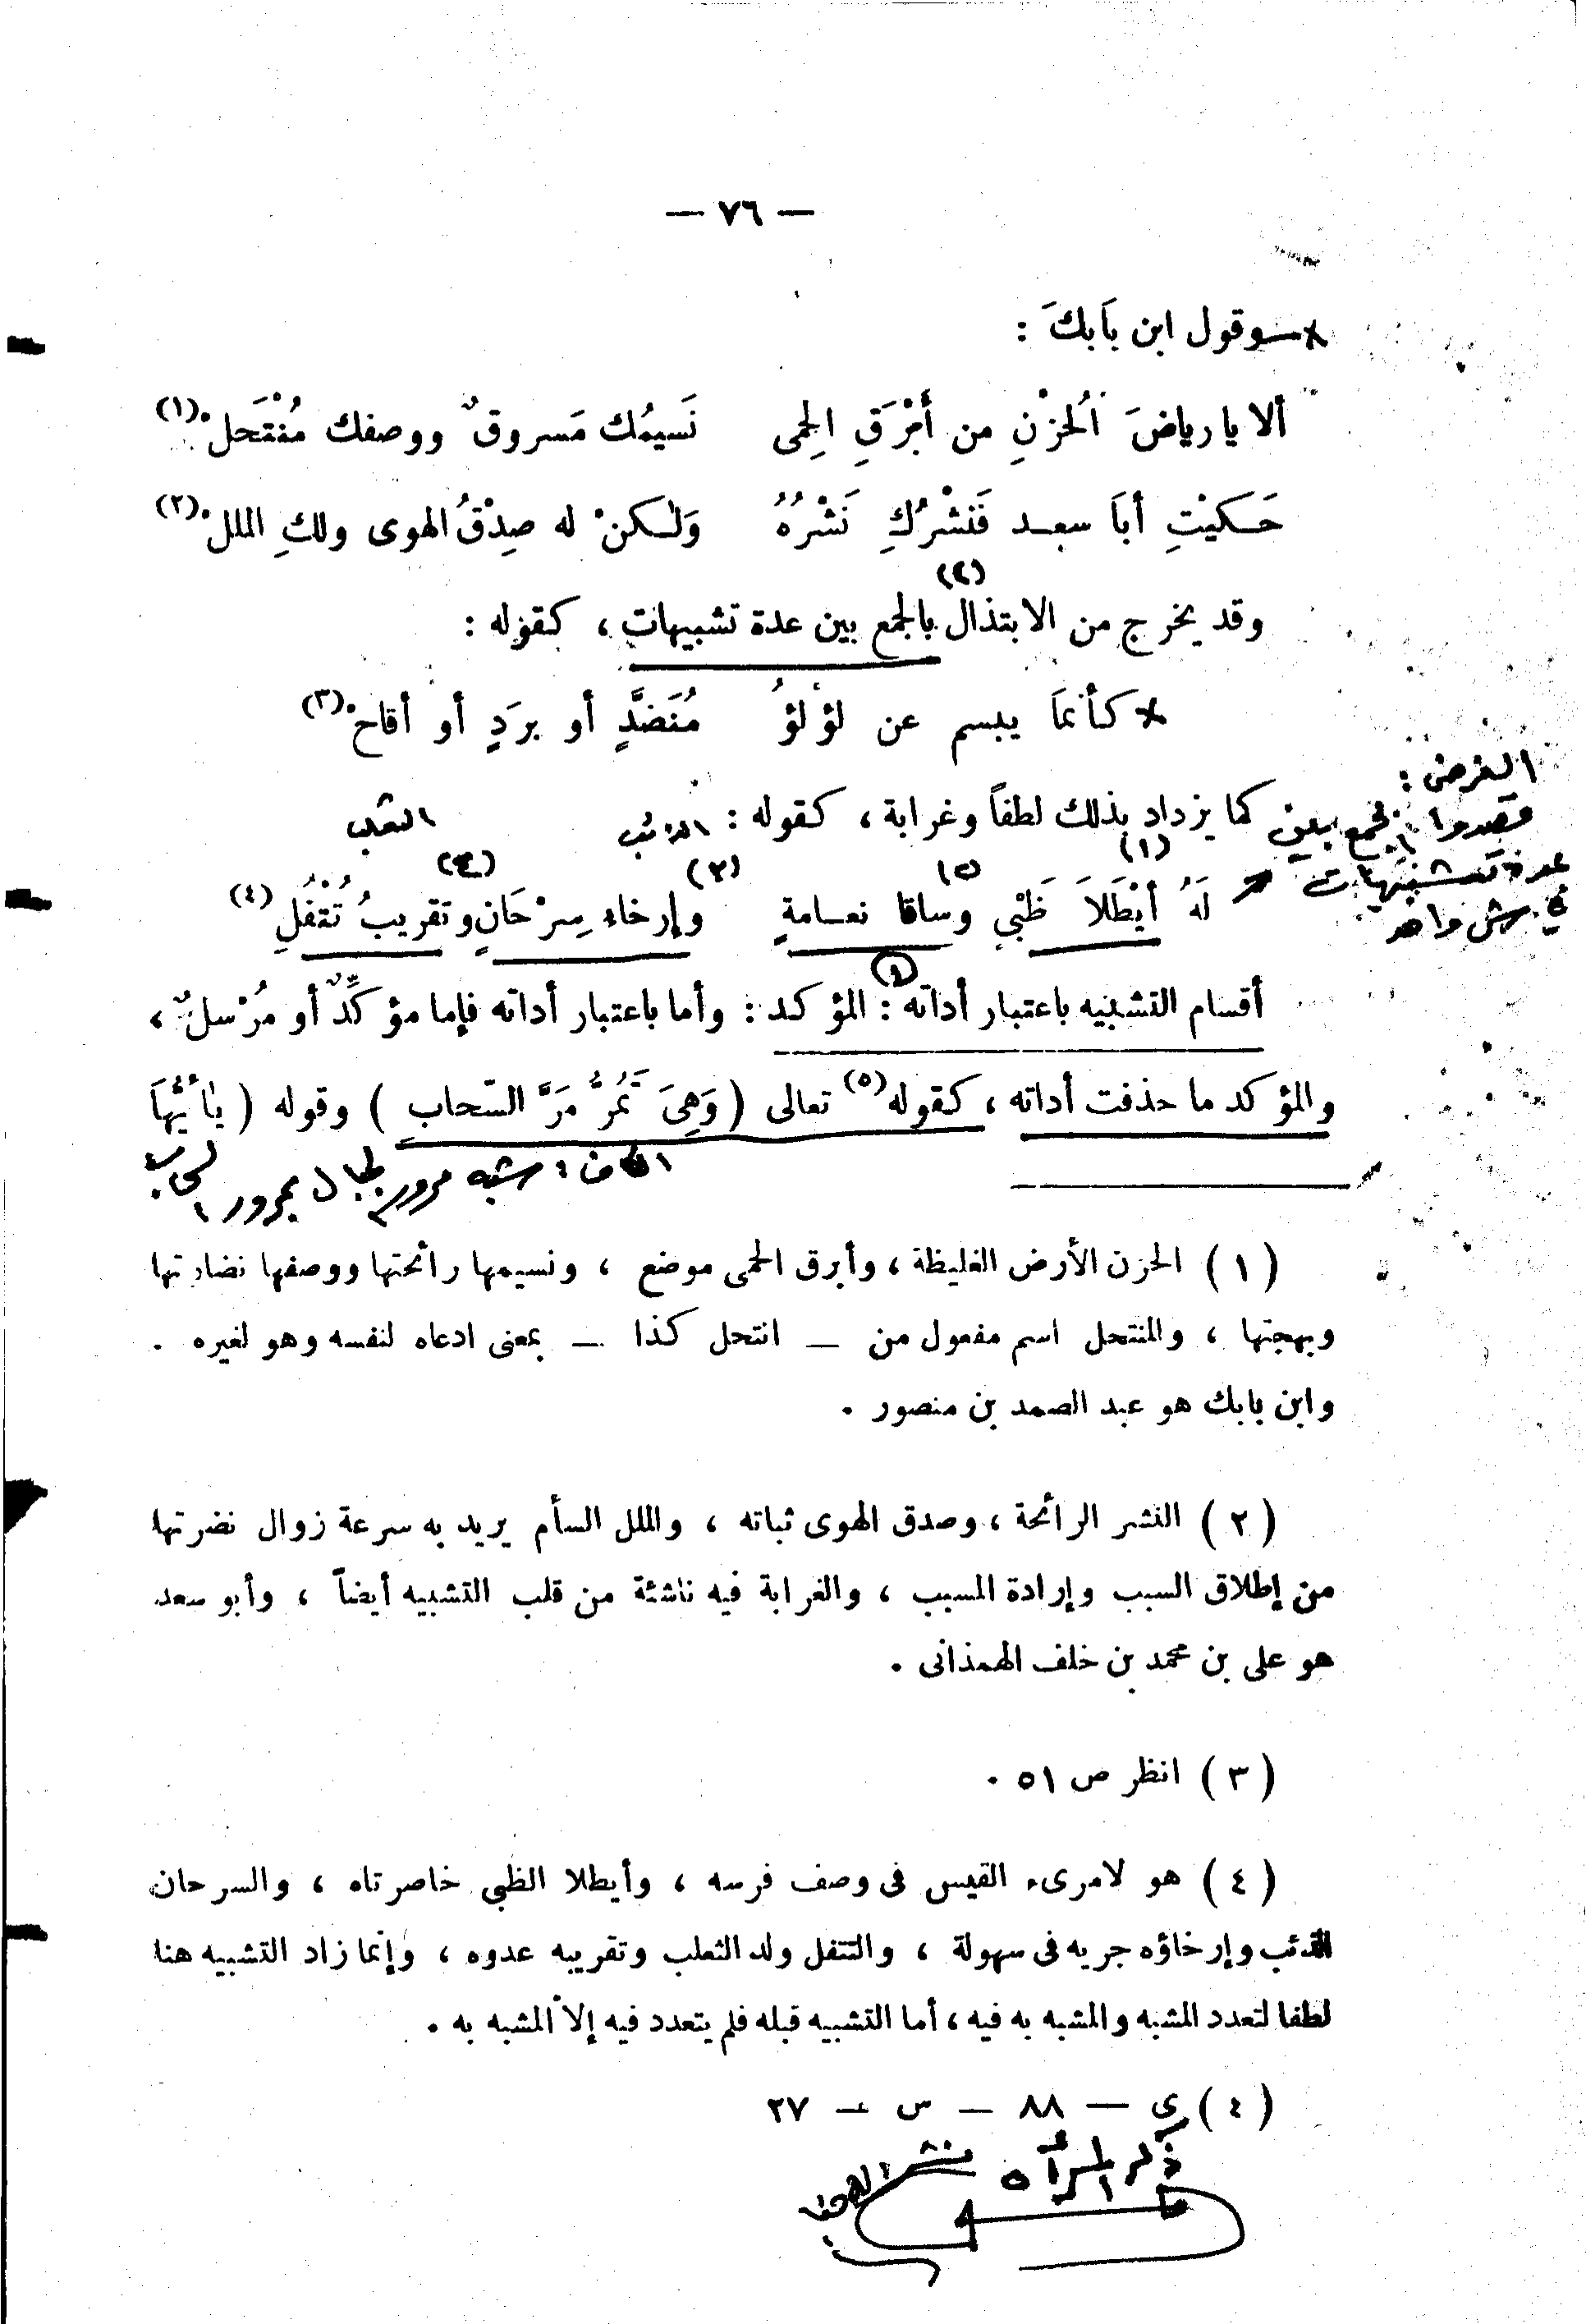 — ٧٦ —
وقول ابن بَابكَ :
ألا يا رياضَ الحَزْنِ من أَبْرَقِ الحِمى نَسيمُك مَسروقٌ ووصفك مُنْتَحَلْ (١)
حَكَيْتِ أبَا سعد فَنَشْرُكِ نَشْرُهُ وَلٰكنْ له صِدْقُ الهوى ولكِ المللْ (٢)
(٢)
وقد يخرج من الابتذال بالجمع بين عدة تشبيهات ، كقوله :
كأنمَا يبسم عن لؤلؤُ مُنَضَّدٍ أو برَدٍ أو أقاحْ (٣)
الغرض :
قصدوا الجمع بين
عدة تشبيهات
في شئ واحد
كما يزداد بذلك لطفاً وغرابة ، كقوله :
الذئب الثعلب
(١) (٢) (٣) (٤)
لَهُ أيْطَلاَ ظَبْيٍ وساقا نعامةٍ وإرخاء سِرْحَانٍ وتقريبُ تُتْفُلِ (٤)
أقسام التشبيه باعتبار أداته : المؤكد : وأما باعتبار أداته فإما مؤكَّدٌ أو مُرْسلٌ ،
والمؤكد ما حذفت أداته ، كقوله (٥) تعالى ( وَهِيَ تَمُرُّ مَرَّ السّحابِ ) وقوله ( يٰأَيُّهَا
شبه مرور الجبال بمرور السحاب
( ١ ) الحزن الأرض الغليظة ، وأبرق الحمى موضع ، ونسيمها رائحتها ووصفها نضارتها
وبهجتها ، والمنتحل اسم مفعول من — انتحل كذا — بمعنى ادعاه لنفسه وهو لغيره .
وابن بابك هو عبد الصمد بن منصور .
( ٢ ) النشر الرائحة ، وصدق الهوى ثباته ، والملل السأم يريد به سرعة زوال نضرتها
من إطلاق السبب وإرادة المسبب ، والغرابة فيه ناشئة من قلب التشبيه أيضاً ، وأبو سعد
هو على بن محمد بن خلف الهمذانى .
( ٣ ) انظر ص ٥١ .
( ٤ ) هو لامرىء القيس فى وصف فرسه ، وأيطلا الظبي خاصرتاه ، والسرحان
الذئب وإرخاؤه جريه فى سهولة ، والتتفل ولد الثعلب وتقريبه عدوه ، وإنما زاد التشبيه هنا
لطفا لتعدد المشبه والمشبه به فيه ، أما التشبيه قبله فلم يتعدد فيه إلا المشبه به .
( ٤ ) ى — ٨٨ — س — ٢٧